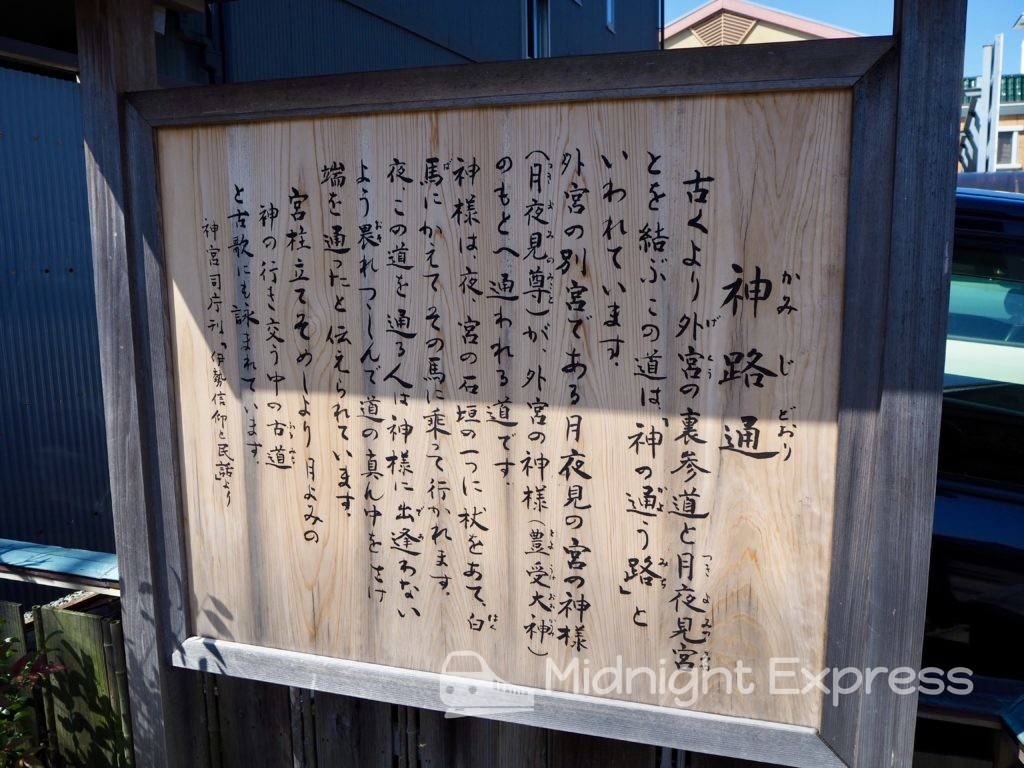 神路通
かみじどおり
古くより外宮の裏参道と月夜見宮
げくう
つきよみのみや
とを結ぶこの道は、「神の通う路」と
かよ
みち
いわれています。
外宮の別宮である月夜見の宮の神様
(月夜見尊)が、外宮の神様(豊受大神)
つきよみのみこと
とようけおおみかみ
のもとへ通われる道です。
神様は、夜、宮の石垣の一つに杖をあて、白
はく
馬にかえてその馬に乗って行かれます。
ば
夜、この道を通る人は神様に出逢わない
であ
よう畏れつつしんで道の真ん中をさけ
おそ
端を通ったと伝えられています。
宮柱立てそめしより月よみの
神の行き交う中の古道
ふるみち
と古歌にも詠まれています。
神宮司庁刊「伊勢信仰と民話」より
Midnight Express